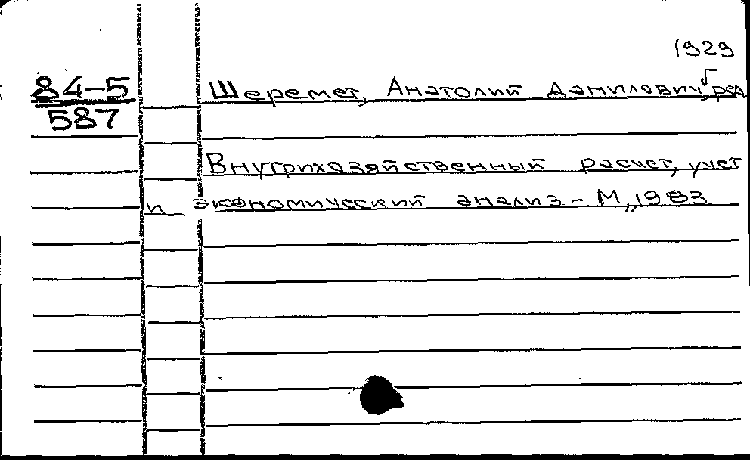 1929
84-5 Шеремет, Анатолий Данилович, ред
587
Внутрихозяйственный расчет, учет
и экономический анализ - М., 1983